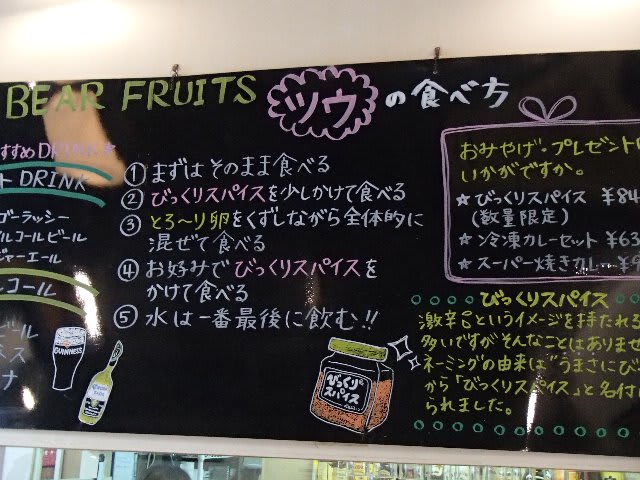 BEAR FRUITS ツウの食べ方
すすめDRINK★
DRINK
ゴーラッシー
ルコールビール
ジャーエール
コール
ビール
ネス
ナ
GUINNESS
① まずは そのまま食べる
② びっくりスパイスを少しかけて食べる
③ とろ〜り卵をくずしながら全体的に
混ぜて食べる
④ お好みで びっくりスパイスを
かけて食べる
⑤ 水は一番最後に飲む!!
びっくり
スパイス
おみやげ・プレゼントに
いかがですか。
★びっくりスパイス ¥84
(数量限定)
★冷凍カレーセット ¥63
★スーパー焼きカレー ¥9
びっくりスパイス
激辛!?というイメージを持たれる
多いですがそんなことはありませ
ネーミングの由来は"うまさにび
から「びっくりスパイス」と名付け
られました。